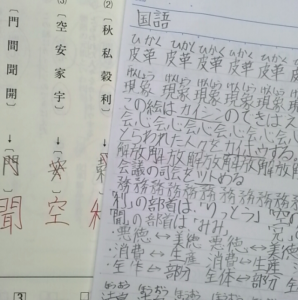 (2)
〔秋 私 穀 利〕
(3)
〔空 安 家 宇〕
↓
空
〔門 間 聞 開〕
↓
門
聞
3
国語
ひかく ひかく ひかく ひかく ひかく
皮革 皮革 皮革 皮革 皮革
げんしょう げんしょう
現象 現象 現象 現象 現象
この絵はカイシンのできばえ
会心 会心 会心 会心 会心
とらわれた人々をカイホウする。
解放 解放 解放 解放 解放
会議の司会をつとめる
務務務務務務務務務
「利」の部首は「りっとう」
聞の部首は「みみ」
悪徳↔美徳 悪徳↔美
消費↔生産 消費↔生産
全体↔部分 全体↔部分